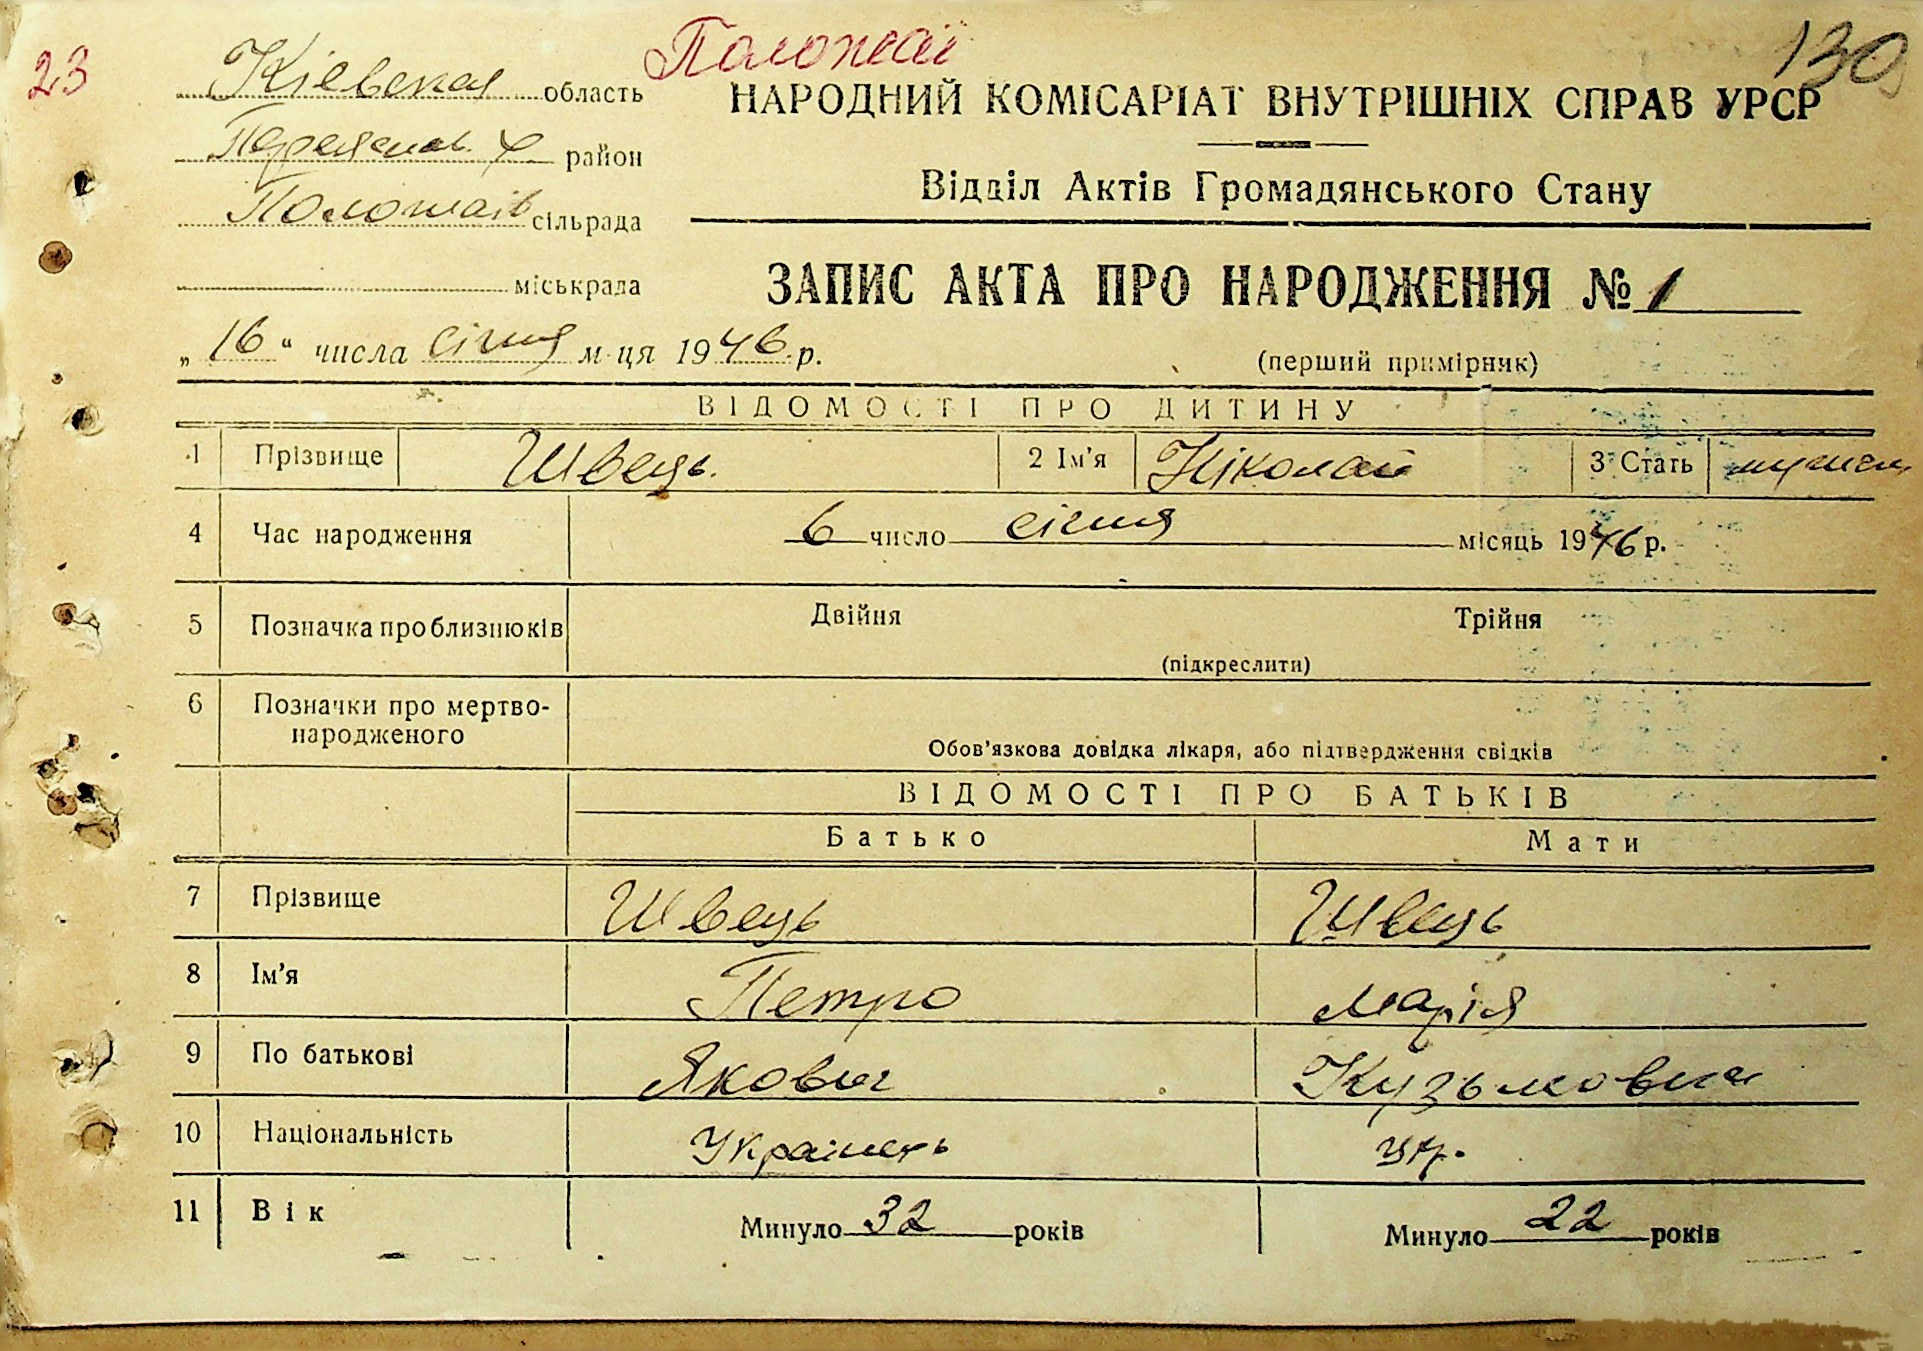 23
Положаї
130
Кіевская область
НАРОДНИЙ КОМІСАРІАТ ВНУТРІШНІХ СПРАВ УРСР
Переяслав. Х район
Відділ Актів Громадянського Стану
Положаїв сільрада
міськрада
ЗАПИС АКТА ПРО НАРОДЖЕННЯ № 1
„16“ числа січня м-ця 1946 р.
(перший примірник)
ВІДОМОСТІ ПРО ДИТИНУ
1 Прізвище Швець. 2 Ім'я Ніколай 3 Стать
4 Час народження 6 число січня місяць 1946 р.
5 Позначка про близнюків Двійня Трійня
(підкреслити)
6 Позначки про мертво-
народженого
Обов'язкова довідка лікаря, або підтвердження свідків
ВІДОМОСТІ ПРО БАТЬКІВ
Батько Мати
7 Прізвище Швець Швець
8 Ім'я Петро Марія
9 По батькові Якович Кузьмовна
10 Національність Українець укр.
11 Вік Минуло 32 років Минуло 22 років